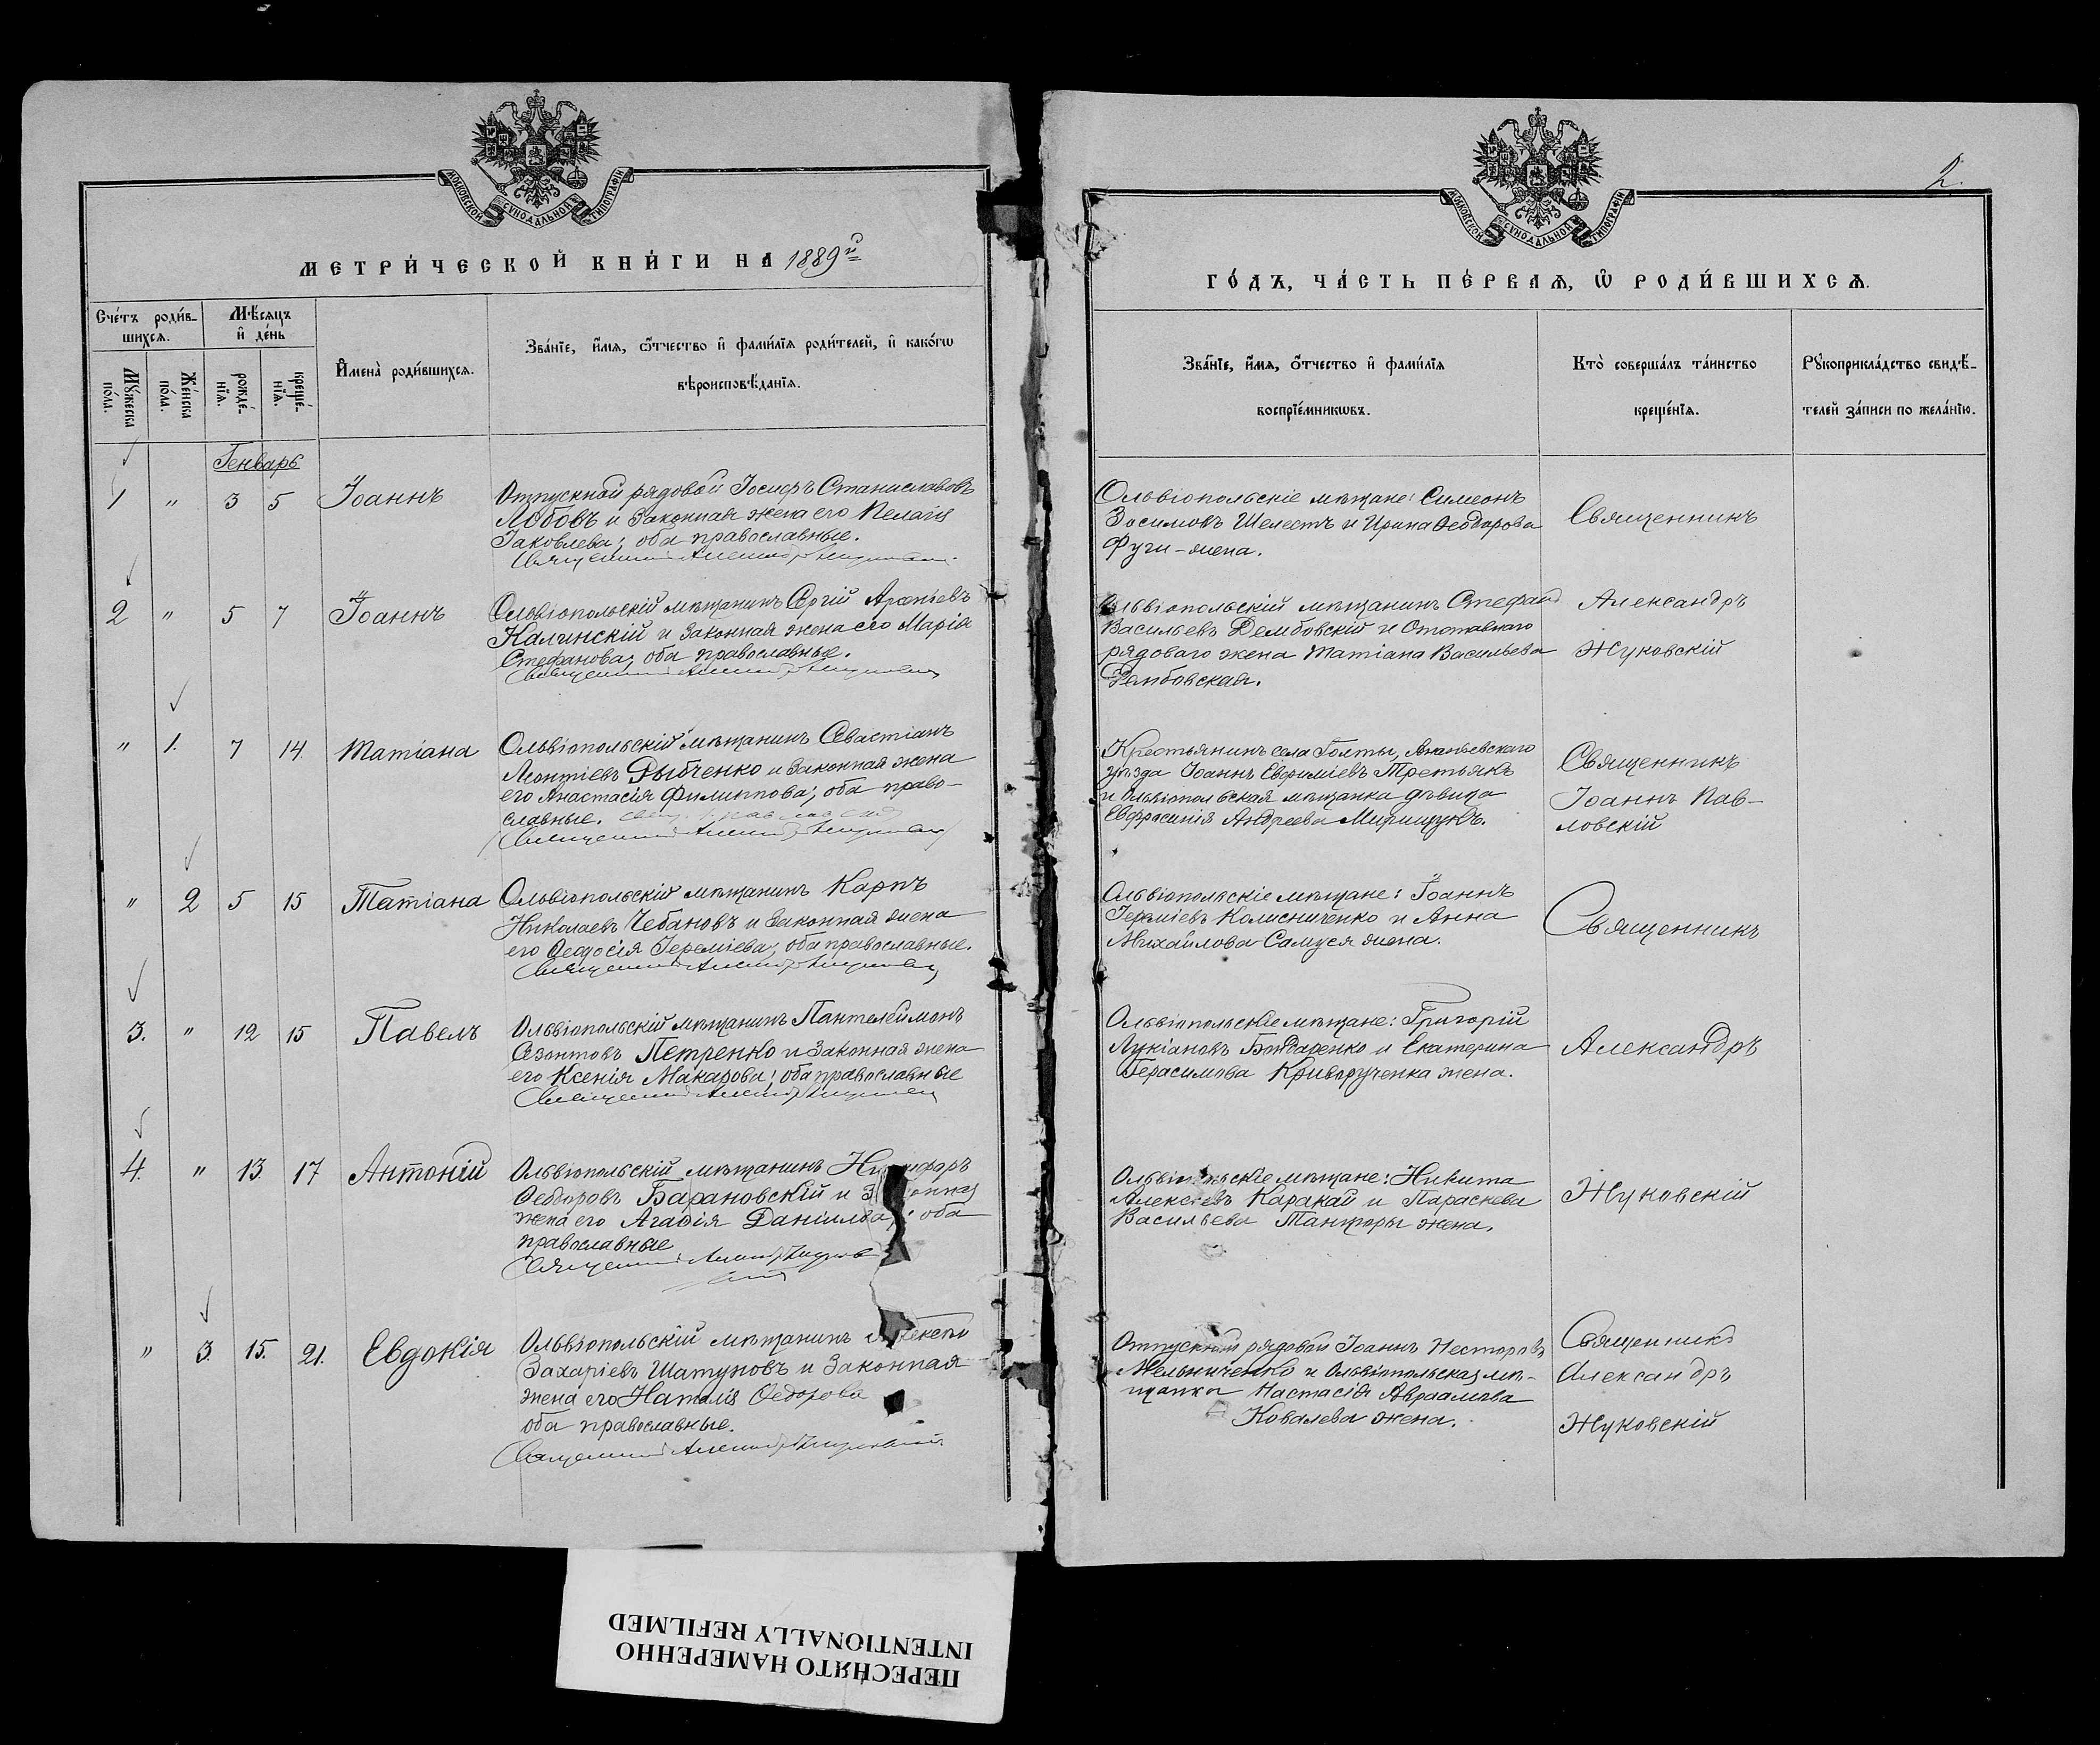 МОСКОВСКОЙ СУНОДАЛЬНОЙ ТИПОГРАФІИ
МЕТРИ́ЧЕСКОЙ КНИ́ГИ НА 1889й
Сче́тъ роди́в-
шихсѧ.
Мѣ́сѧцъ
и҆ де́нь
Мꙋ́жеска
по́ла.
Же́нска
по́ла.
рожде́-
нїѧ.
креще́-
нїѧ.
И҆мена̀ роди́вшихсѧ.
Зва́нїе, и҆́мѧ, ѻ҆́тчество и҆ фами́лїѧ роди́телей, и҆ како́гѡ
вѣроисповѣ́данїѧ.
Генварь
1 " 3 5 Іоаннъ
Отпускной рядовой Іосифъ Станиславовъ
Лобовъ и законная жена его Пелагія
Іаковлева; оба православные.
Священникъ
2 " 5 7 Іоаннъ
Ольвіопольскій мѣщанинъ Сергій Арсеніевъ
Калинскій и законная жена его Марія
Стефанова; оба православные.
Священникъ
" 1. 7 14. Татіана
Ольвіопольскій мѣщанинъ Севастіанъ
Леонтіевъ Дыбченко и законная жена
его Анастасія Филиппова; оба право-
славные.
Священникъ
" 2 5 15 Татіана
Ольвіопольскій мѣщанинъ Карпъ
Николаевъ Чебановъ и законная жена
его Ѳеодосія Іереміева; оба православные.
Священникъ
3. " 12 15 Павелъ
Ольвіопольскій мѣщанинъ Пантелеймонъ
Созонтовъ Петренко и законная жена
его Ксенія Макарова; оба православные
Священникъ
4. " 13. 17 Антоній
Ольвіопольскій мѣщанинъ
Ѳеодоровъ Барановскій и
жена его Агафія Даніилова; оба
православные
Священникъ
" 3. 15. 21. Евдокія
Ольвіопольскій мѣщанинъ
Захаріевъ Шатуновъ и законная
жена его Наталія Ѳедорова
оба православные.
Священникъ
2.
МОСКОВСКОЙ СУНОДАЛЬНОЙ ТИПОГРАФІИ
ГО́ДЪ, ЧА́СТЬ ПЕ́РВАѦ, Ѽ РОДИ́ВШИХСѦ.
Зва́нїе, и҆́мѧ, ѻ҆́тчество и҆ фами́лїѧ
воспрїе́мникѡвъ.
Кто̀ соверша́лъ та́инство
креще́нїѧ.
Рꙋкоприкла́дство свидѣ́-
телей за́писи по жела́нїю.
Ольвіопольскіе мѣщане: Симеонъ
Зосимовъ Шелестъ и Ирина Ѳеодорова
Фуги-жена.
Священникъ
Ольвіопольскій мѣщанинъ Стефанъ
Васильевъ Дембовскій и Отставнаго
рядоваго жена Татіана Васильева
Дембовская.
Александръ
Жуковскій
Крестьянинъ села Голты, Ананьевскаго
уѣзда Іоаннъ Евфиміевъ Третьякъ
и Ольвіопольская мѣщанка дѣвица
Евфросинія Андреева
Священникъ
Іоаннъ Пав-
ловскій
Ольвіопольскіе мѣщане: Іоаннъ
Іереміевъ Колисниченко и Анна
Михайлова Самуся жена.
Священникъ
Ольвіопольскіе мѣщане: Григорій
Лукіановъ Бондаренко и Екатерина
Герасимова Криворученка жена.
Александръ
Ольвіопольскіе мѣщане: Никита
Алексѣевъ Каракай и Параскева
Васильева жена.
Жуковскій
Отпускный рядовой Іоаннъ Несторовъ
Мельниченко и Ольвіопольская мѣ-
щанка Настасія Авраамова
Ковалева жена.
Священникъ
Александръ
Жуковскій
ПЕРЕСНЯТО НАМЕРЕННО
INTENTIONALLY REFILMED